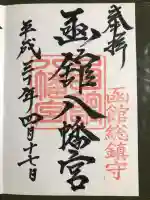 奉拝
函館総鎮守
函館八幡宮
平成三十年四月十七日